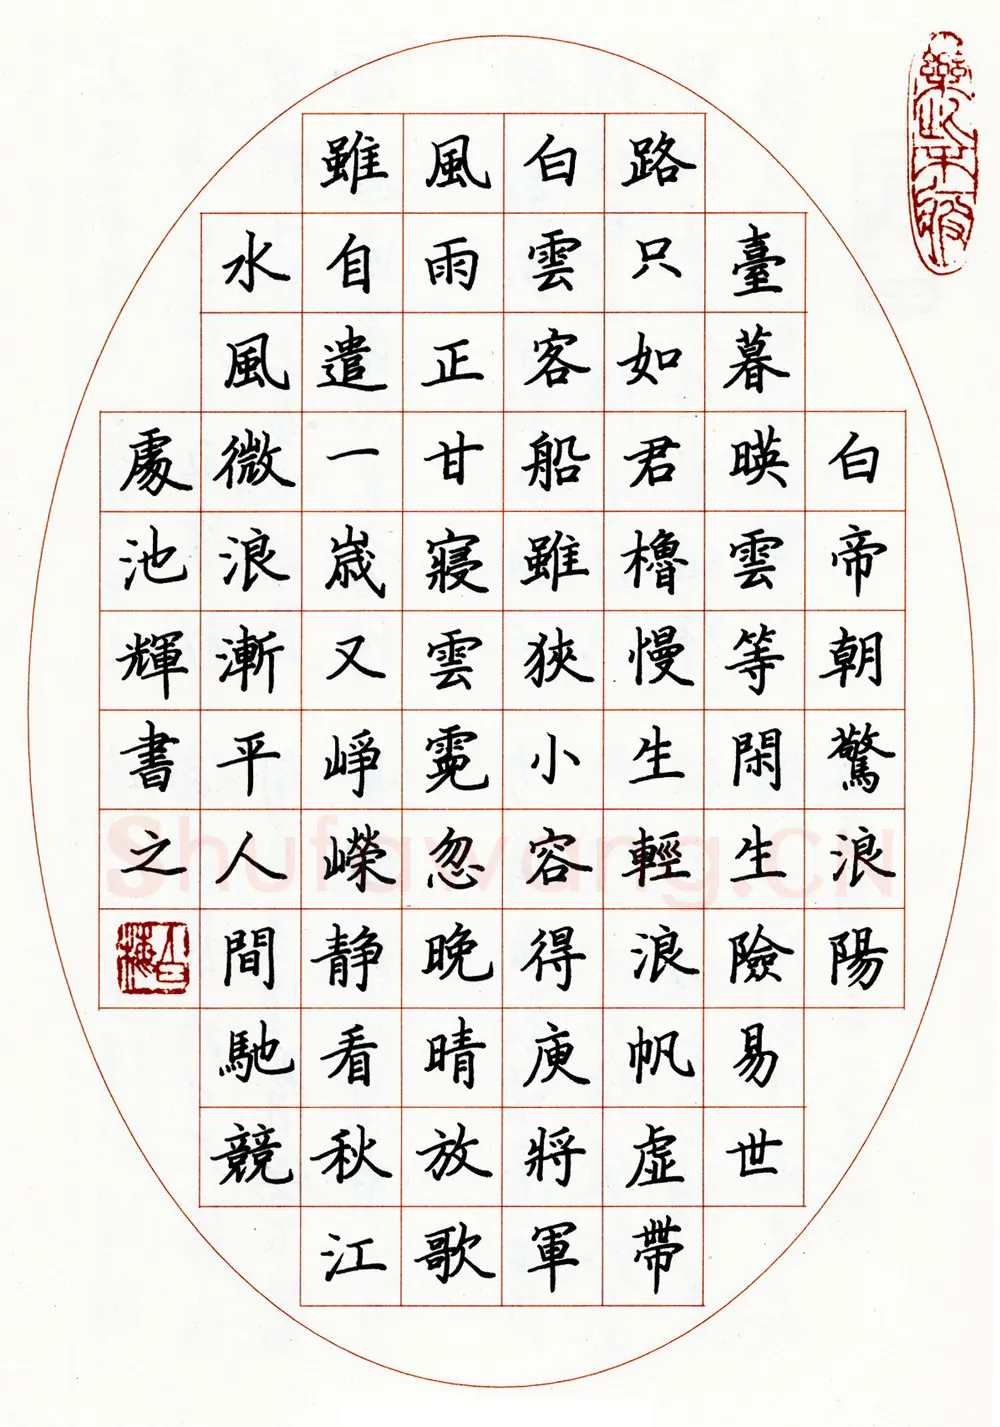 白帝朝驚浪陽
臺暮暎雲等閑生險易世
路只如君櫓慢生輕浪帆虛帶
白雲客船雖狹小容得庚將軍
風雨正甘寢雲霓忽晚晴放歌
雖自遣一嵗又崢嶸静看秋江
水風微浪漸平人間馳競
處池輝書之
樂此不疲
Shufawang.CN